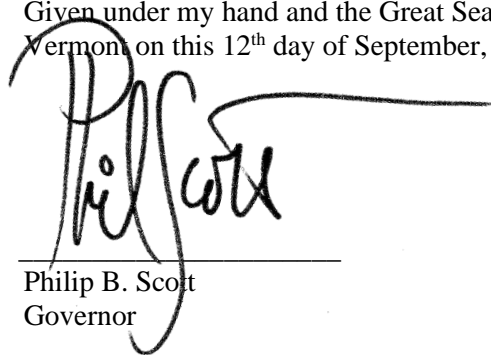 Given under my hand and the Great Sea
Vermont on this 12th day of September,
Phil Scott
Philip B. Scott
Governor